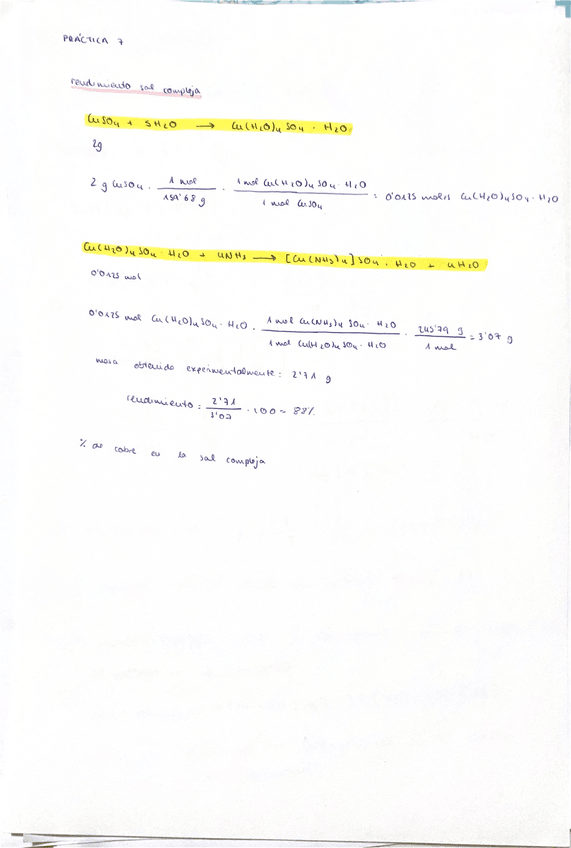 PRÁCTICA 7
rendimiento sal compleja
CuSO4 + 5H2O → Cu(H2O)4SO4 · H2O
2g
2 g CuSO4 · 1 mol / 159'68 g · 1 mol Cu(H2O)4SO4 · H2O / 1 mol CuSO4 = 0'0125 moles Cu(H2O)4SO4 · H2O
Cu(H2O)4SO4 · H2O + 4NH3 → [Cu(NH3)4]SO4 · H2O + 4H2O
0'0125 mol
0'0125 mol Cu(H2O)4SO4 · H2O · 1 mol Cu(NH3)4 SO4 · H2O / 1 mol Cu(H2O)4SO4 · H2O · 245'79 g / 1 mol = 3'07 g
masa obtenida experimentalmente: 2'71 g
rendimiento: 2'71 / 3'07 · 100 = 88%
% de cobre en la sal compleja